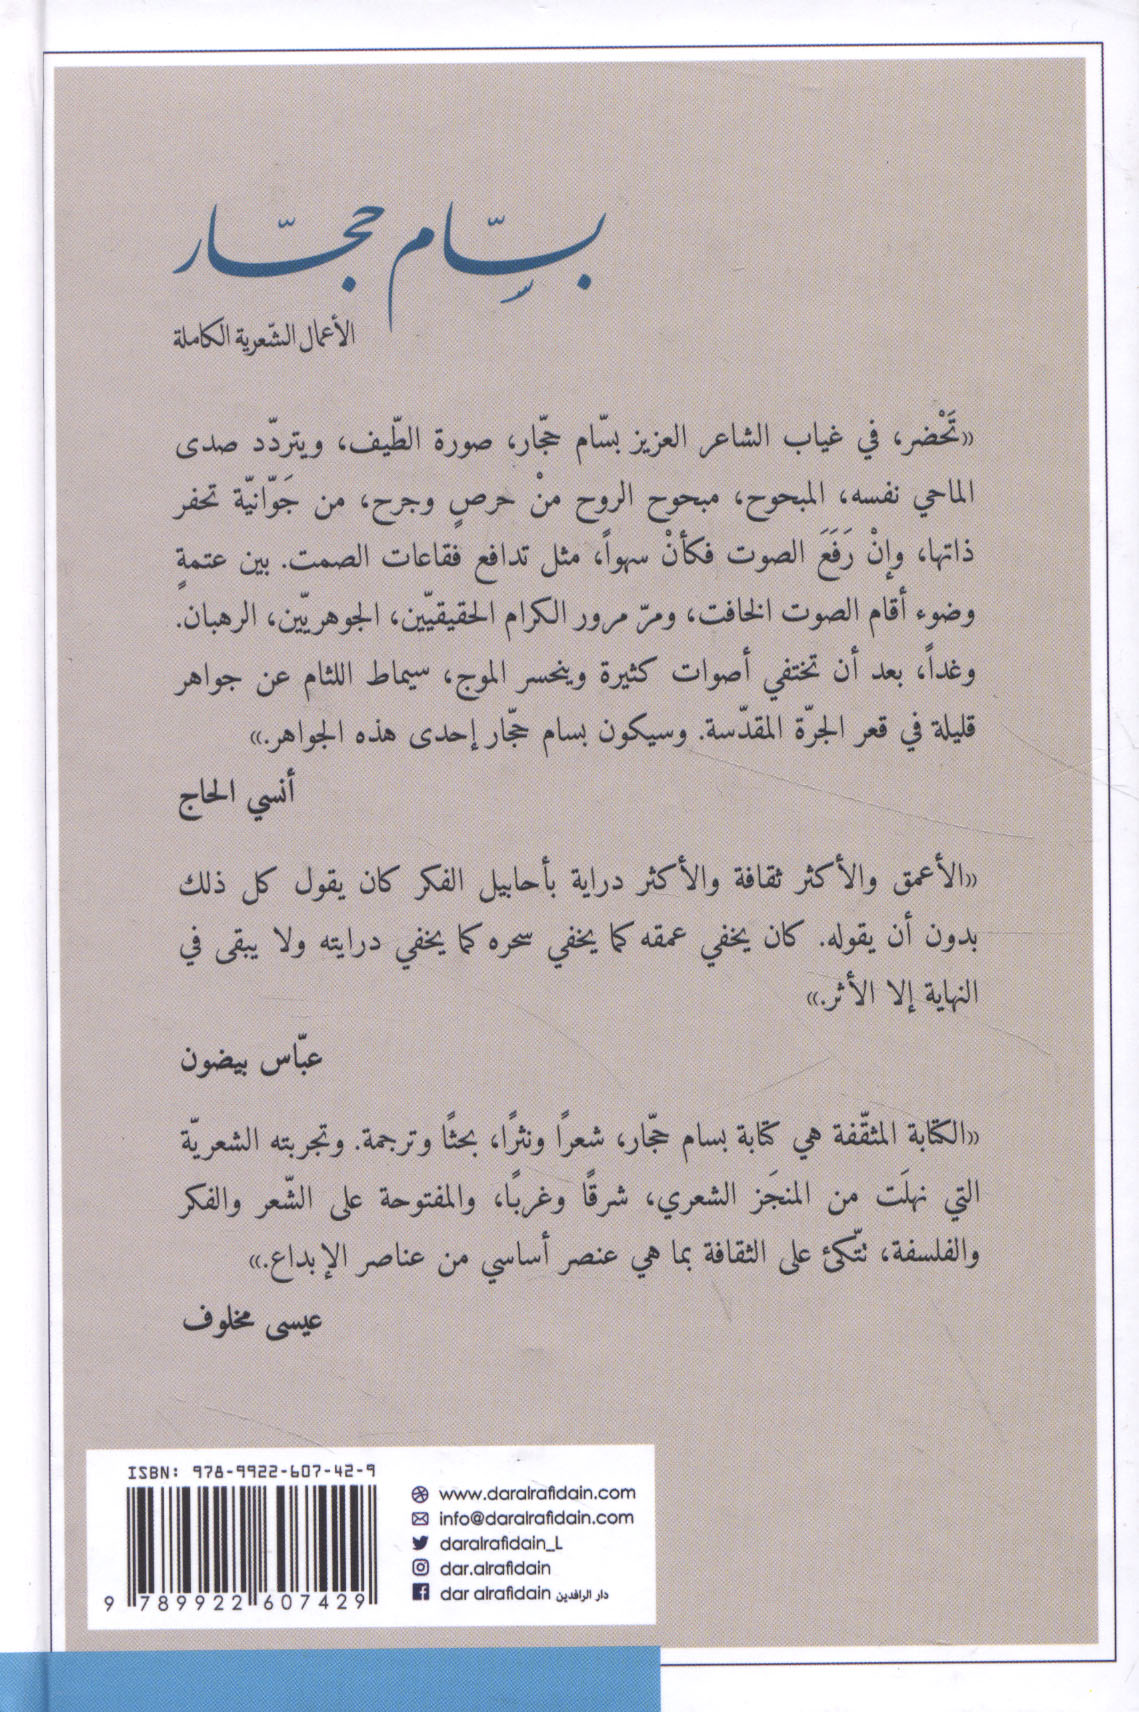 بسّام حجّار
الأعمال الشّعرية الكاملة
«تَحْضر، في غياب الشاعر العزيز بسّام حجّار، صورة الطّيف، ويتردّد صدى
الماحي نفسه، المبحوح، مبحوح الروح منْ حرصٍ وجرح، من جَوّانيّة تحفر
ذاتها، وإنْ رَفَعَ الصوت فكأنْ سهواً، مثل تدافع فقاعات الصمت. بين عتمةٍ
وضوء أقام الصوت الخافت، ومرّ مرور الكرام الحقيقيّين، الجوهريّين، الرهبان.
وغداً، بعد أن تختفي أصوات كثيرة وينحسر الموج، سيماط اللثام عن جواهر
قليلة في قعر الجرّة المقدّسة. وسيكون بسام حجّار إحدى هذه الجواهر.»
أنسي الحاج
«الأعمق والأكثر ثقافة والأكثر دراية بأحابيل الفكر كان يقول كل ذلك
بدون أن يقوله. كان يخفي عمقه كما يخفي سحره كما يخفي درايته ولا يبقى في
النهاية إلا الأثر.»
عبّاس بيضون
«الكتابة المثقّفة هي كتابة بسام حجّار، شعرًا ونثرًا، بحثًا وترجمة. وتجربته الشعريّة
التي نهلَت من المنجَز الشعري، شرقًا وغربًا، والمفتوحة على الشّعر والفكر
والفلسفة، تتّكئ على الثقافة بما هي عنصر أساسي من عناصر الإبداع.»
عيسى مخلوف
ISBN: 978-9922-607-42-9
9 789922 607429
www.daralrafidain.com
info@daralrafidain.com
daralrafidain_L
dar.alrafidain
dar alrafidain دار الرافدين